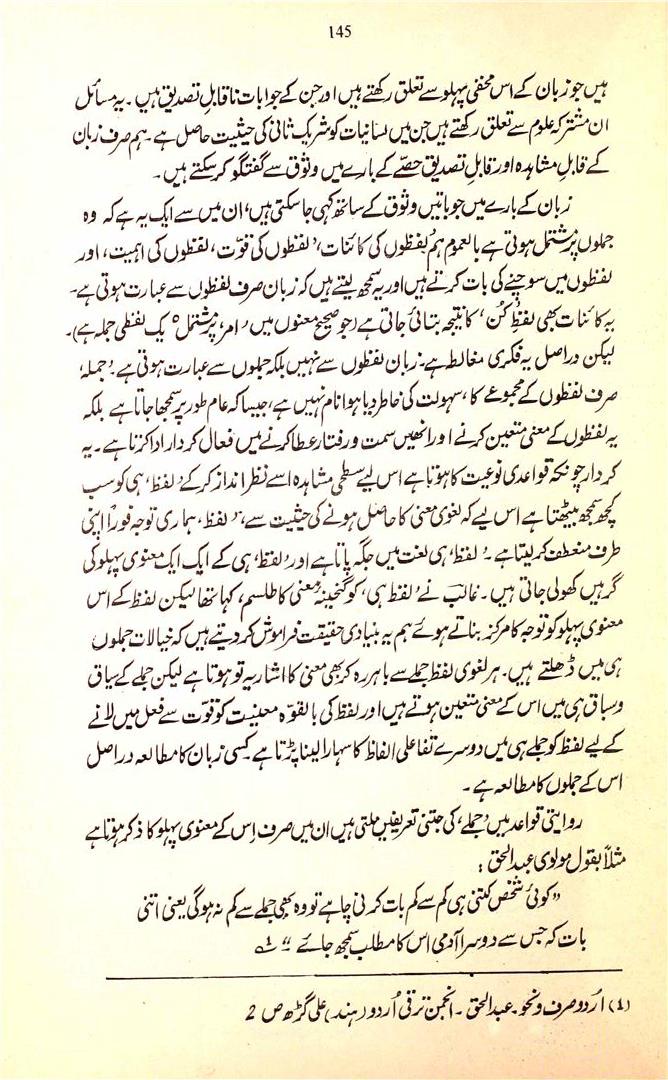 145
ہیں جو زبان کے اس مخفی پہلو سے تعلق رکھتے ہیں اور جن کے جوابات ناقابلِ تصدیق ہیں۔ یہ مسائل
ان مشترکہ علوم سے تعلق رکھتے ہیں جن میں لسانیات کو شریک ثانی کی حیثیت حاصل ہے۔ ہم صرف زبان
کے قابلِ مشاہدہ اور قابلِ تصدیق حصّے کے بارے میں وثوق سے گفتگو کر سکتے ہیں۔
زبان کے بارے میں جو باتیں وثوق کے ساتھ کہی جا سکتی ہیں، ان میں سے ایک یہ ہے کہ وہ
جملوں پر مشتمل ہوتی ہے بالعموم ہم ’لفظوں کی کائنات‘، ’لفظوں کی قوت‘، لفظوں کی اہمیت، اور
لفظوں میں سوچنے کی بات کرتے ہیں اور یہ سمجھ لیتے ہیں کہ زبان صرف لفظوں سے عبارت ہوتی ہے۔
یہ کائنات بھی لفظِ ’کُن‘ کا نتیجہ بتائی جاتی ہے (جو صحیح معنوں میں ’امر‘ پر مشتمل یک لفظی جملہ ہے)۔
لیکن دراصل یہ فکری مغالطہ ہے۔ زبان لفظوں سے نہیں بلکہ جملوں سے عبارت ہوتی ہے۔ ’جملہ‘
صرف لفظوں کے مجموعے کا، سہولت کی خاطر دیا ہوا نام نہیں ہے، جیسا کہ عام طور پر سمجھا جاتا ہے بلکہ
یہ لفظوں کے معنی متعین کرنے اور انھیں سمت و رفتار عطا کرنے میں فعال کردار ادا کرتا ہے۔ یہ
کردار چونکہ قواعدی نوعیت کا ہوتا ہے اس لیے سطحی مشاہدہ اسے نظر انداز کر کے ’لفظ‘ ہی کو سب
کچھ سمجھ بیٹھتا ہے اس لیے کہ لغوی معنی کا حاصل ہونے کی حیثیت سے، ’لفظ‘ ہماری توجہ فوراً اپنی
طرف منعطف کر لیتا ہے۔ ’لفظ‘ ہی لغت میں جگہ پاتا ہے اور ’لفظ‘ ہی کے ایک ایک معنوی پہلو کی
گرہیں کھولی جاتی ہیں۔ غالبؔ نے ’لفظ ہی‘ کو گنجینۂ معنی کا طلسم، کہا تھا لیکن لفظ کے اس
معنوی پہلو کو توجہ کا مرکز بناتے ہوئے ہم یہ بنیادی حقیقت فراموش کر دیتے ہیں کہ خیالات جملوں
ہی میں ڈھلتے ہیں۔ ہر لغوی لفظ جملے سے باہر رہ کر بھی معنی کا اشاریہ تو ہوتا ہے لیکن جملے کے سیاق
و سباق ہی میں اس کے معنی متعین ہوتے ہیں اور لفظ کی بالقوہ معینیت کو قوّت سے فعل میں لانے
کے لیے لفظ کو جملے ہی میں دوسرے تفاعلی الفاظ کا سہارا لینا پڑتا ہے۔ کسی زبان کا مطالعہ دراصل
اس کے جملوں کا مطالعہ ہے۔
روایتی قواعد میں ’جملے‘ کی جتنی تعریفیں ملتی ہیں ان میں صرف اِس کے معنوی پہلو کا ذکر ہوتا ہے
مثلاً بقول مولوی عبدالحق:
”کوئی شخص کتنی ہی کم سے کم بات کرنی چاہے تو وہ بھی جملے سے کم نہ ہوگی یعنی اتنی
بات کہ جس سے دوسرا آدمی اس کا مطلب سمجھ جائے“ ۱؎
(۱) اردو صرف و نحو۔ عبدالحق۔ انجمن ترقی اُردو (ہند) علی گڑھ ص 2